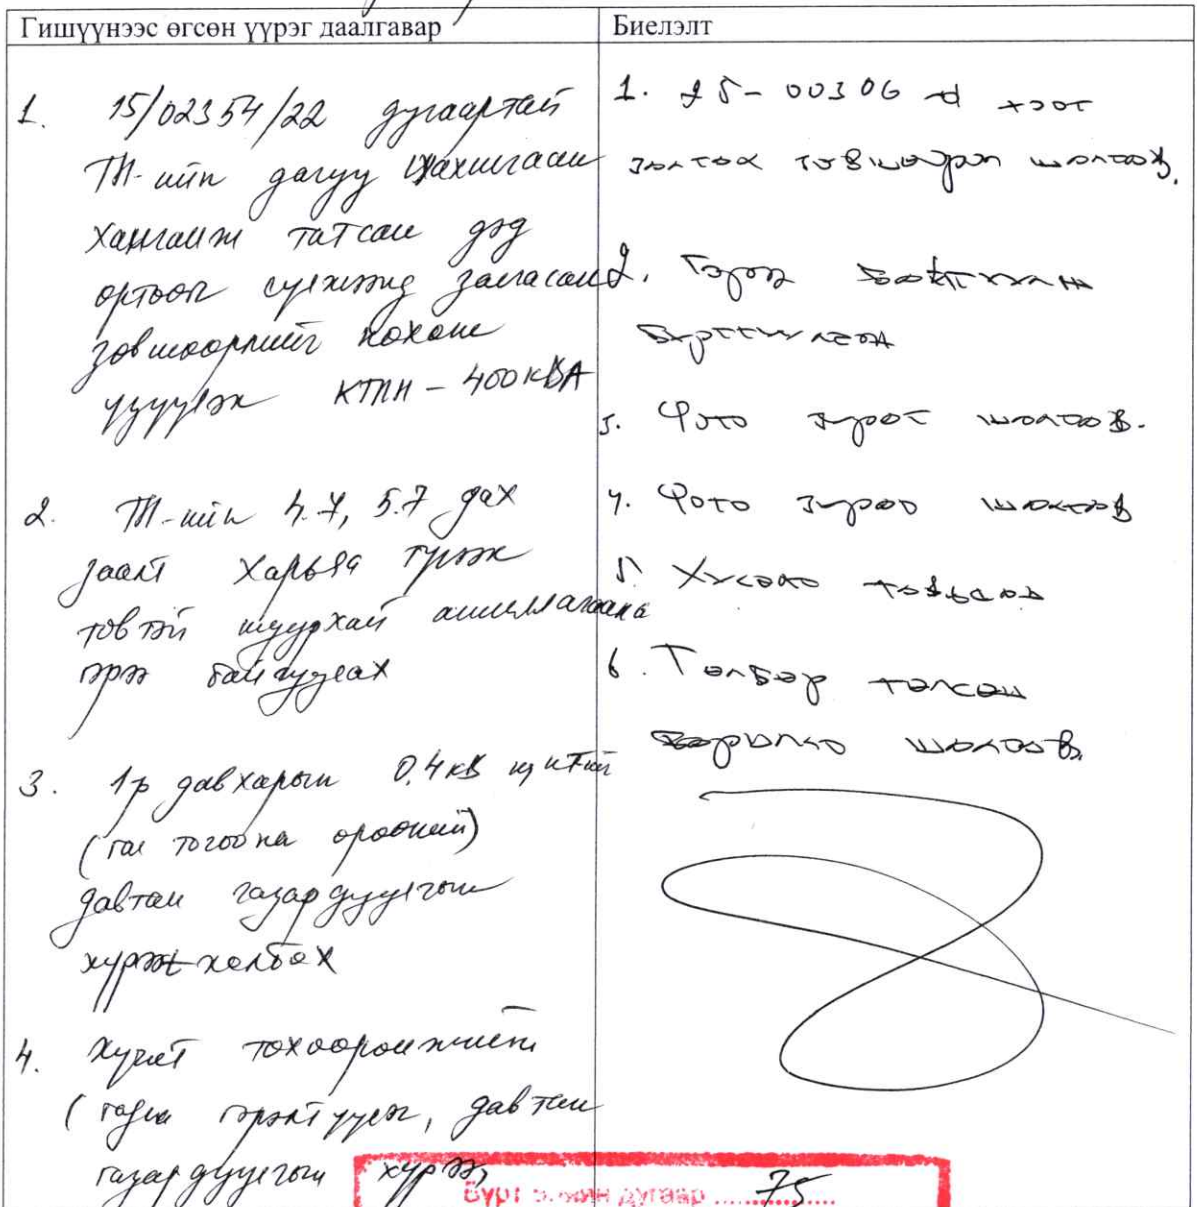 Гишүүнээс өгсөн үүрэг даалгавар
Биелэлт
1. 15/02354/22 дугаартай
ТН-ийн дагуу цахилгаан
хангамж татсан дэд
өртөөг сүлжээнд залгасан
зөвшөөрлийг нөхөж
үзүүлэх КТПН - 400кВА
2. ТН-ийн 4.7, 5.7 дах
заалт харьяа түгээх
төвтэй шуурхай ашиглалтын
гэрээ байгуулах
3. 1р давхарын 0,4кВ щитний
(гал тогооны өрөөний)
давтан газардуулгын
хүрээ холбох
4. Хүчит тохоорөмжийн
(гадна гэрэлтүүлэг, давтан
газардуулгын хүрээ,
1. 25-00306
залгах зөвшөөрөл шалгав.
2. Гэрээ байгуулж
бүртгүүлсэн
3. Фото зураг шалгав.
4. Фото зураг шалгав
5. Хүснэгт тавьсан
6. Төлбөр төлсөн
баримт шалгав.
дугаар ..... 75 .....